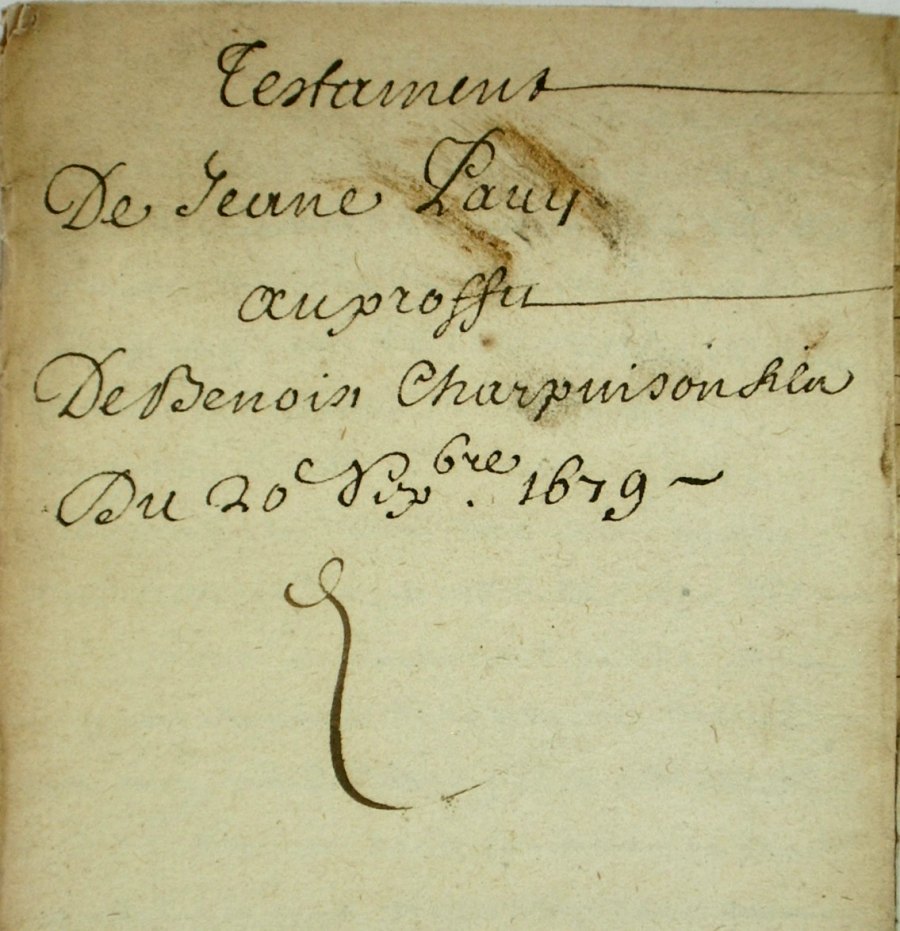 Testament
De Jeane Lauy
au proffit
De Benoist Charpuison
Du 20e 1679